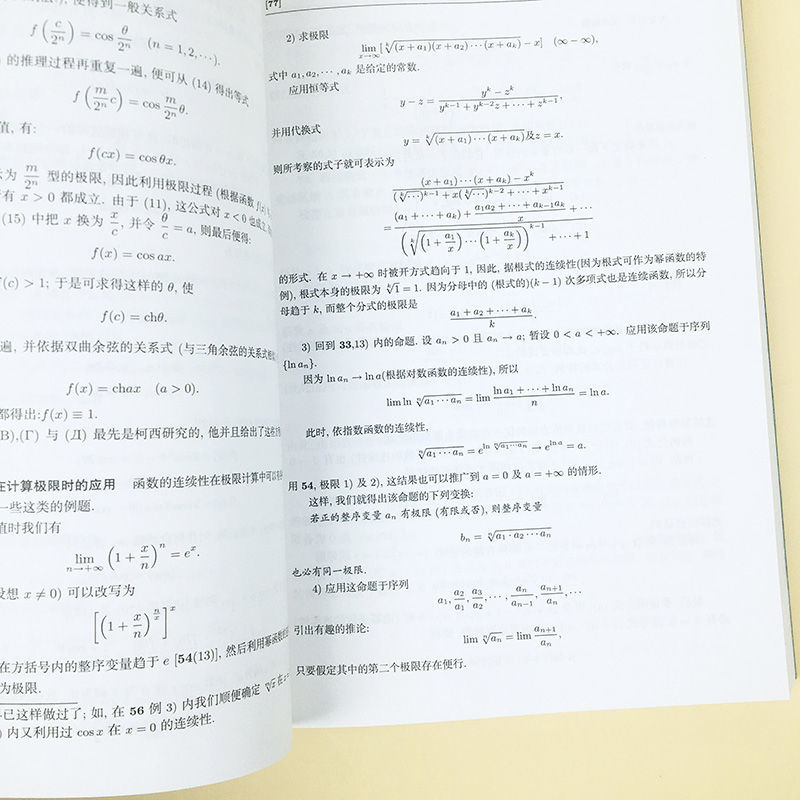 便得到一般关系式
f(c/2ⁿ) = cos θ/2ⁿ (n = 1, 2, ⋯).
的推理过程再重复一遍, 便可从 (14) 得出等式
f(m/2ⁿ c) = cos m/2ⁿ θ.
值, 有:
f(cx) = cos θx.
示为 m/2ⁿ 型的极限, 因此利用极限过程 (根据函数 f(x)
有 x > 0 都成立. 由于 (11), 这公式对 x < 0 也成立.
(15) 中把 x 换为 x/c, 并令 θ/c = a, 则最后便得:
f(x) = cos ax.
f(c) > 1; 于是可求得这样的 θ, 使
f(c) = chθ.
遍, 并依据双曲余弦的关系式 (与三角余弦的关系式
f(x) = chax (a > 0).
都得出:f(x) ≡ 1.
(B),(Γ) 与 (Д) 最先是柯西研究的, 他并且给出了这些
在计算极限时的应用 函数的连续性在极限计算中可以
一些这类的例题.
值时我们有
lim n→+∞ (1 + x/n)ⁿ = eˣ.
设想 x ≠ 0) 可以改写为
[(1 + x/n)^(n/x)]ˣ
在方括号内的整序变量趋于 e [54(13)], 然后利用幂函数的
为极限.
已这样做过了; 如, 在 56 例 3) 内我们顺便确定
内又利用过 cos x 在 x = 0 的连续性.
[77]
2) 求极限
lim x→∞ [ᵏ√((x + a₁)(x + a₂)⋯(x + aₖ)) − x] (∞ − ∞),
式中 a₁, a₂, ⋯, aₖ 是给定的常数.
应用恒等式
y − z = (yᵏ − zᵏ)/(yᵏ⁻¹ + yᵏ⁻²z + ⋯ + zᵏ⁻¹),
并用代换式
y = ᵏ√((x + a₁)⋯(x + aₖ))及z = x.
则所考察的式子就可表示为
((x + a₁)⋯(x + aₖ) − xᵏ)/((ᵏ√⋯)ᵏ⁻¹ + x(ᵏ√⋯)ᵏ⁻² + ⋯ + xᵏ⁻¹)
= ((a₁ + ⋯ + aₖ) + (a₁a₂ + ⋯ + aₖ₋₁aₖ)/x + ⋯)/((ᵏ√((1 + a₁/x)⋯(1 + aₖ/x)))ᵏ⁻¹ + ⋯ + 1)
的形式. 在 x → +∞ 时被开方式趋向于 1, 因此, 据根式的连续性(因为根式可作为幂函数的特
例), 根式本身的极限为 ᵏ√1 = 1. 因为分母中的 (根式的)(k − 1) 次多项式也是连续函数, 所以分
母趋于 k, 而整个分式的极限是
(a₁ + a₂ + ⋯ + aₖ)/k.
3) 回到 33,13) 内的命题. 设 aₙ > 0 且 aₙ → a; 暂设 0 < a < +∞. 应用该命题于序列
{ln aₙ}.
因为 ln aₙ → ln a(根据对数函数的连续性), 所以
lim ln ⁿ√(a₁⋯aₙ) = lim (ln a₁ + ⋯ + ln aₙ)/n = ln a.
此时, 依指数函数的连续性,
ⁿ√(a₁⋯aₙ) = e^(ln ⁿ√(a₁⋯aₙ)) → e^(ln a) = a.
用 54, 极限 1) 及 2), 这结果也可以推广到 a = 0 及 a = +∞ 的情形.
这样, 我们就得出该命题的下列变换:
若正的整序变量 aₙ 有极限 (有限或否), 则整序变量
bₙ = ⁿ√(a₁ · a₂ ⋯ aₙ)
也必有同一极限.
4) 应用这命题于序列
a₁, a₂/a₁, a₃/a₂, ⋯, aₙ/aₙ₋₁, aₙ₊₁/aₙ, ⋯
引出有趣的推论:
lim ⁿ√aₙ = lim aₙ₊₁/aₙ,
只要假定其中的第二个极限存在便行.